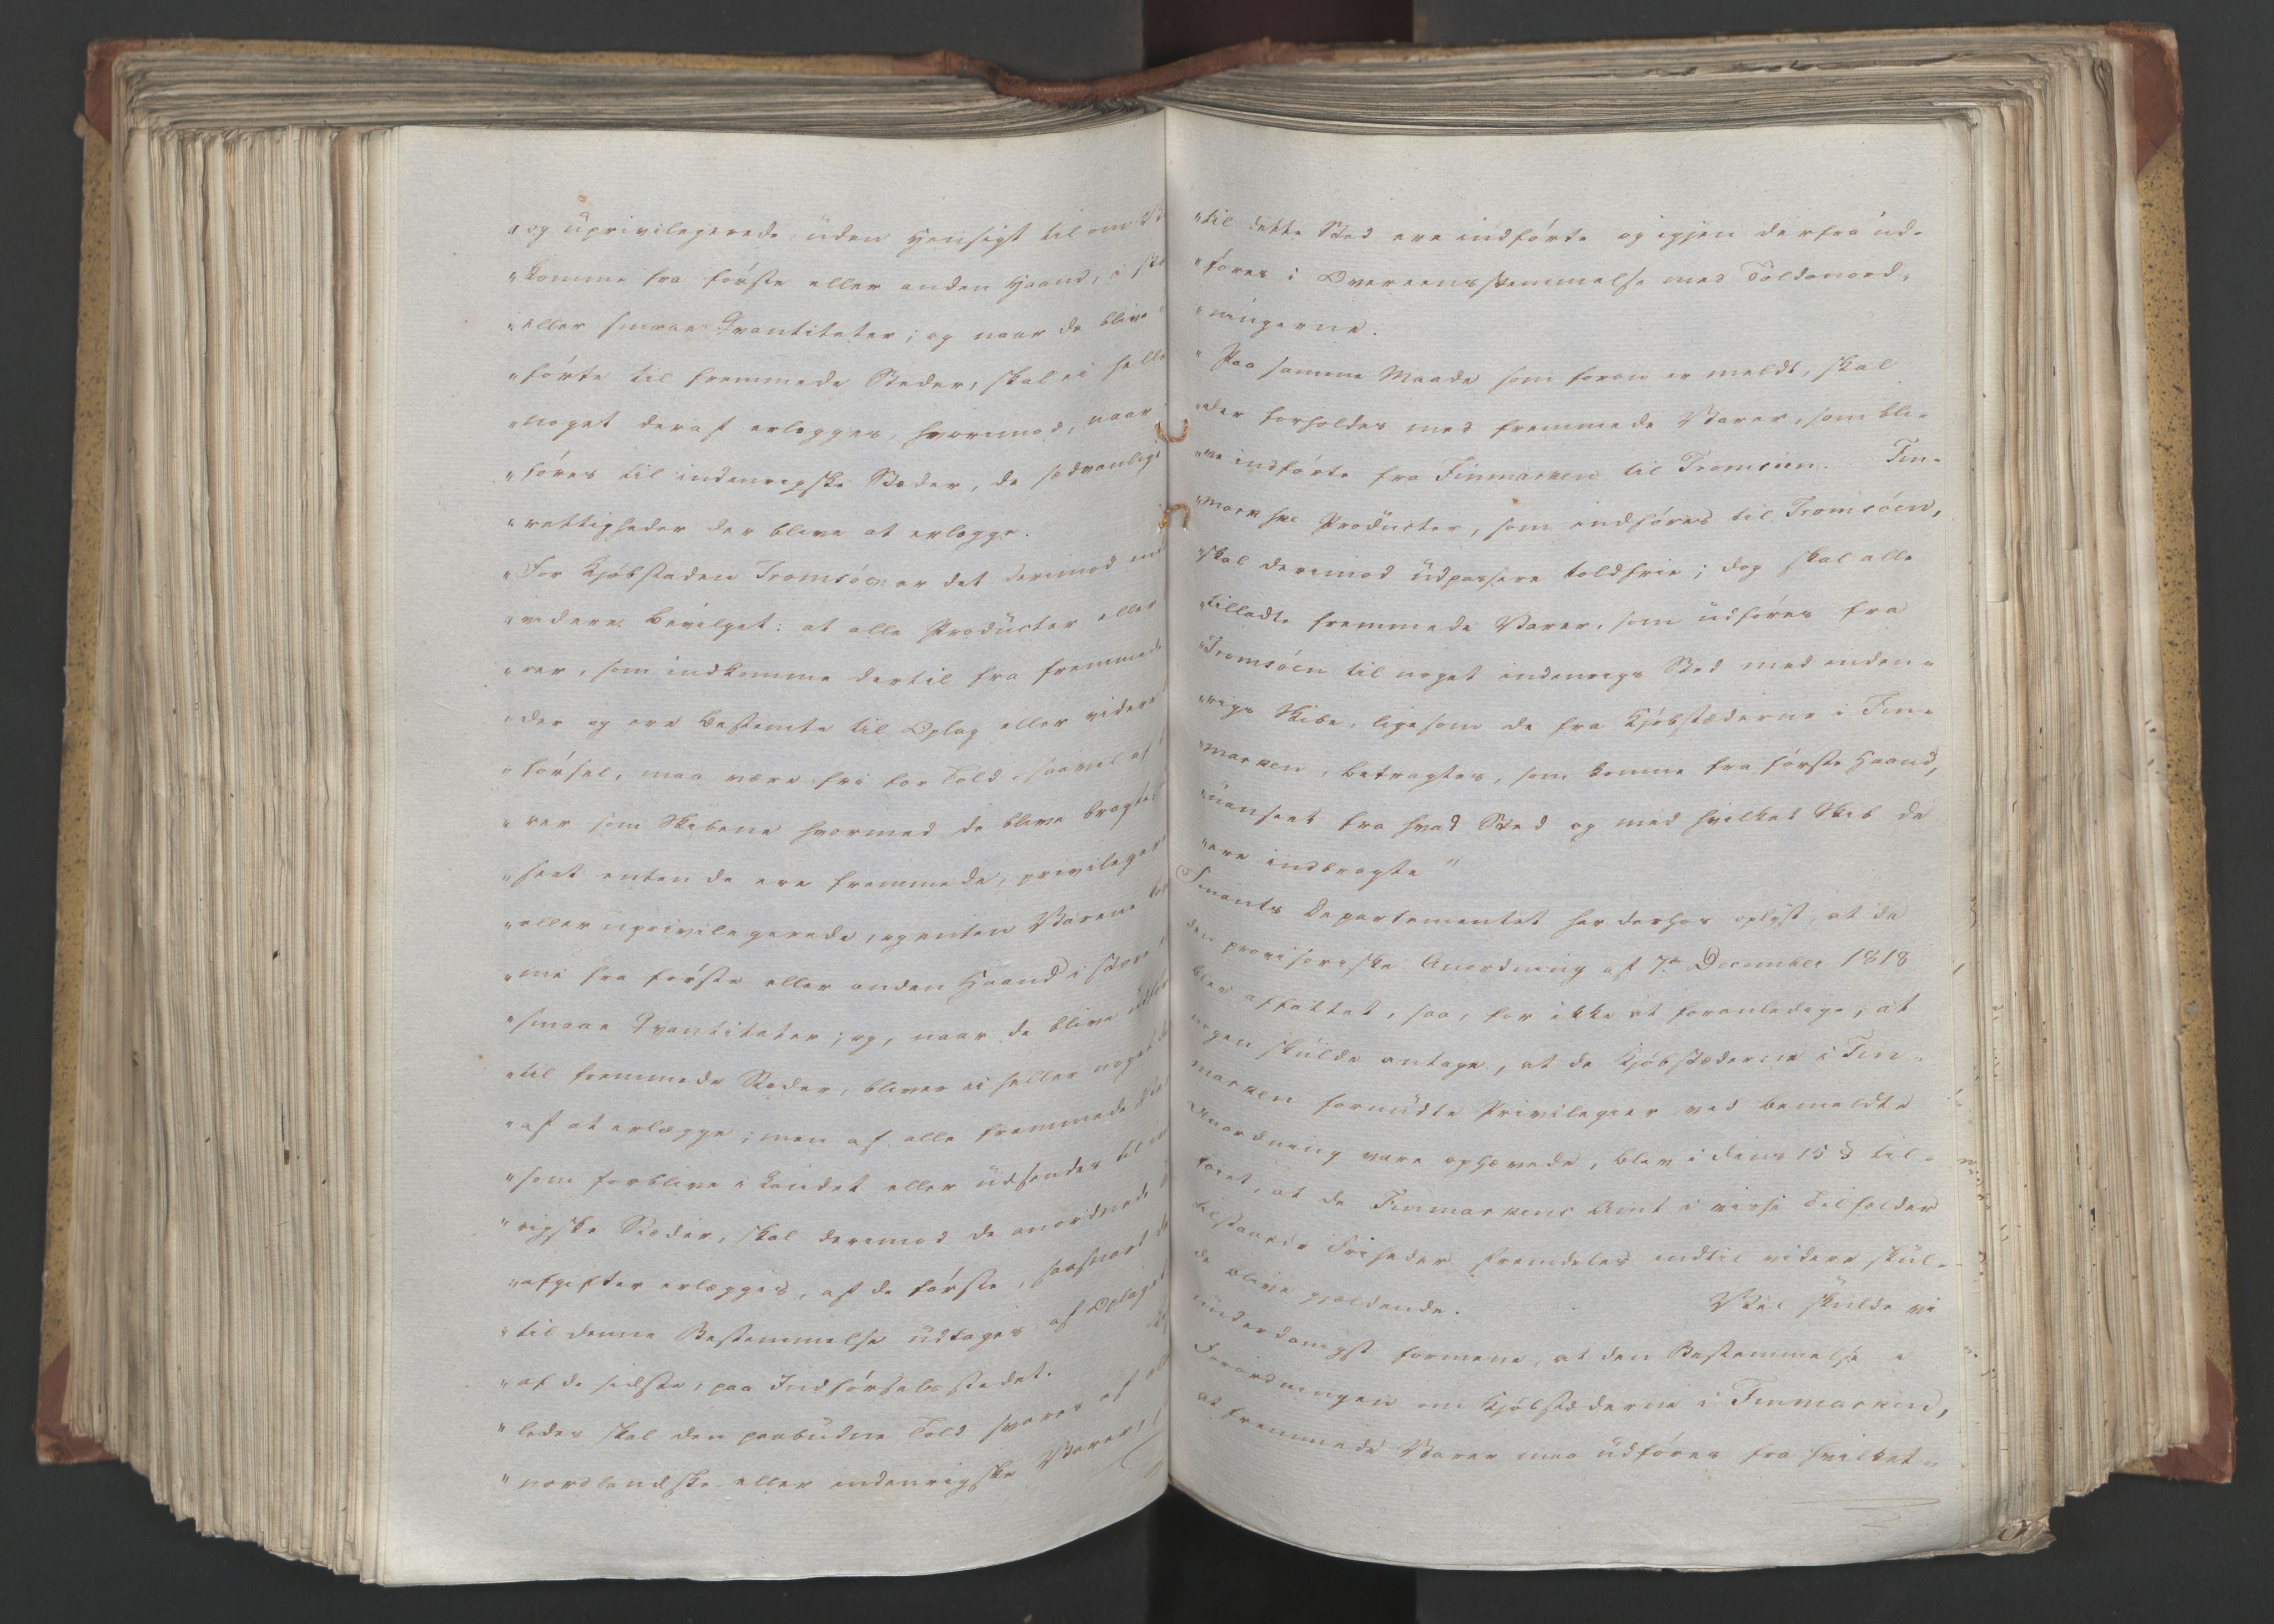 "og üprivilegerede uden Hensigt til om de
"komme fra første eller anden Haand, i sto
"eller smaae Qvantiteter; og naar de blive
"førte til fremmede Steder, skal ei helle
"noget deraf erlegges, hvorimod, naar
"føres til indenrigske Stæder, de sædvanlige
"rettigheder der blive at erlægge.
"For Kjøbstaden Tromsøen er det derimod end
"videre bevilget: at alle Producter eller
"rer, som indkomme dertil fra fremmede
"der og ere bestemte til Oplag eller videre
"førsel, maa være fri for Told, saavel af
"rer som Skibene hvormed de blive bragte,
"seet enten de ere fremmede, privileger
"eller uprivilegerede, og enten Varene kom
"me fra første eller anden Haand i store
"smaae Qvantiteter; og, naar de blive udfør
"til fremmede Steder, bliver ei heller noget de
"af at erlægge; men af alle fremmede Va
"som forblive i Landet eller üdsendes til in
"rigske Steder, skal derimod de anordnede
"afgifter erlægges, af de første, saasnart de
"til denne Bestemmelse üdtages af Oplaget
"af de sidste, paa Indførselsstedet.
"ledes skal den paabudne Told svares af alle
"nordlandske eller indenrigske Varer,
"til dette Sted ere indførte og igjen derfra üd-
"føres i Overeensstemmelse med Toldanord-
"ningerne.
"Paa samme Maade som foran er meldt, skal
"der forholdes med fremmede Varer, som bli-
"ve indførte fra Finmarken til Tromsøen. Fin-
"markske Producter, som indføres til Tromsøen,
"skal derimod üdpassere toldfrie; dog skal alle
"tilladte fremmede Varer, som üdføres fra
"Tromsøen til noget indenrigs Sted med inden-
"rigs Skibe, ligesom de fra Kjøbstæderne i Fin-
"marken, betragtes, som komme fra første Haand,
"üanseet fra hvad Sted og med hvilket Skib de
"ere indbragte"
Finants Departementet har derhos oplyst, at da
den provisoriske Anordning af 7de December 1818
blev affattet, saa, for ikke at foranledige, at
nogen skülde antage, at de Kjøbstæderne i Fin-
marken forundte Privilegier ved bemeldte
Anordning vare ophævede, blev i dens 15 § til-
føiet, at de Finmarkens Amt i visse Tilfælder
tilstaaede Friheder fremdeles indtil videre skül-
de blive gjældende. Vel skulde vi
ünderdanigst formene, at den Bestemmelse i
Forordningen om Kjøbstæderne i Finmarken,
at fremmede Varer maa üdføres fra hvilket-